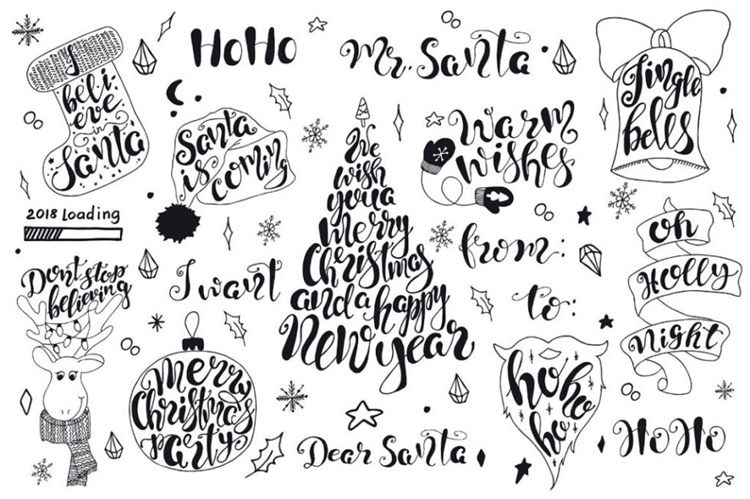 I
beli-
eve
in
Santa
HoHo
Mr. Santa
Jingle
bells
Santa
is
coming
We
wish
you a
merry
Christmas
and a happy
New year
Warm
wishes
2018 Loading
Dont stop
believing
I want
from:
to:
oh
Holly
Night
Merry
Christmas
party
Dear Santa
ho
ho
ho
HoHo